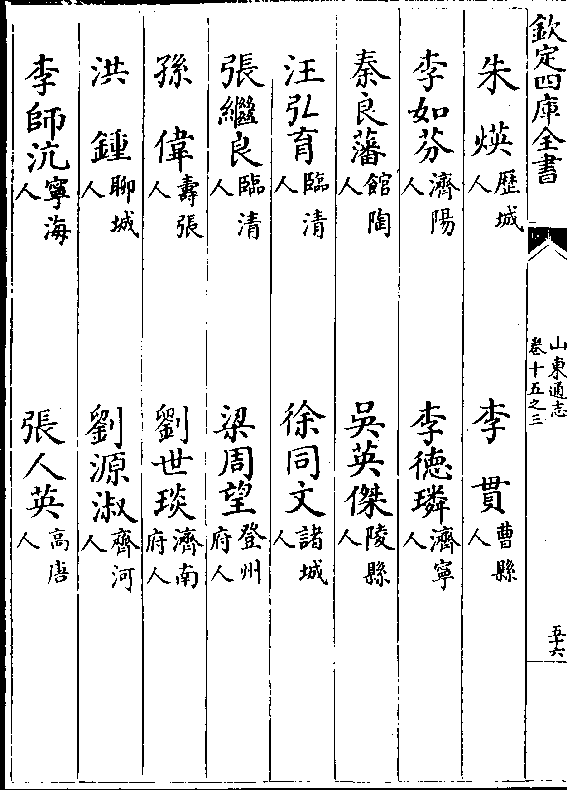 欽定四庫全書
山東通志
卷十五之三
五十六
朱煐歷城人
李貫曹縣人
李如芬濟陽人
李德璘濟寧人
秦良藩館陶人
吳英傑陵縣人
汪弘育臨清人
徐同文諸城人
張繼良臨清人
梁周望登州府人
孫偉壽張人
劉世琰濟南府人
洪鍾聊城人
劉源淑齊河人
李師沆寧海人
張人英高唐人